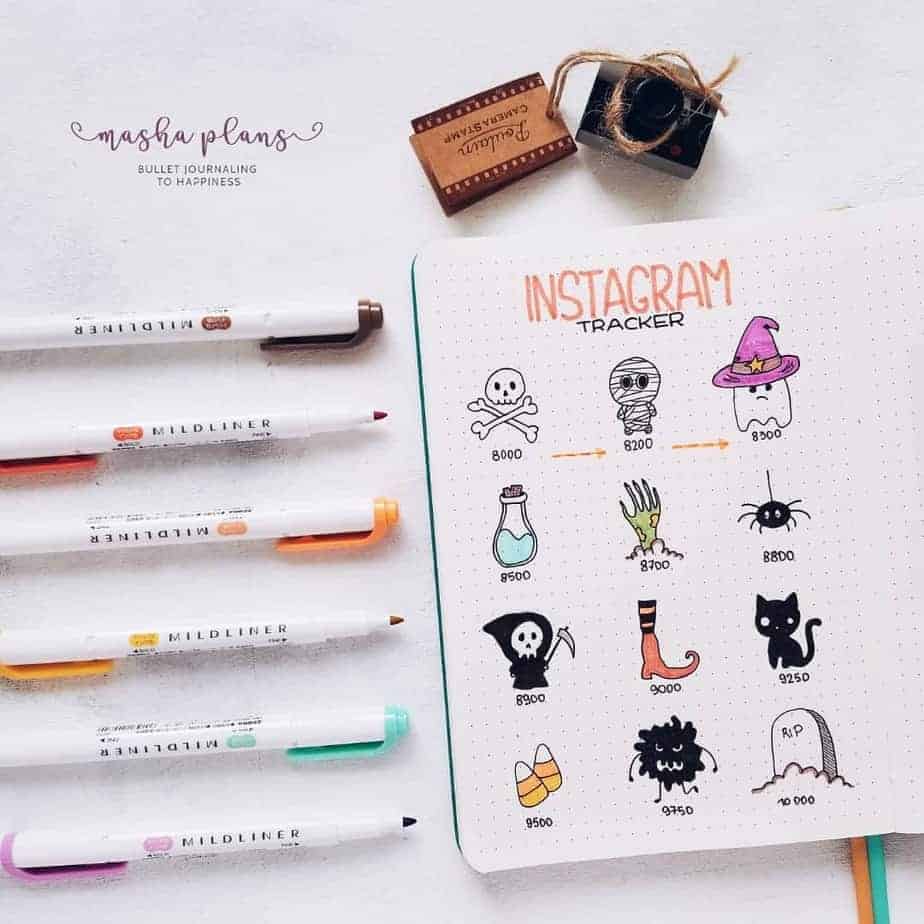 masha plans
BULLET JOURNALING
TO HAPPINESS
Poulain
CAMERA STAMP
INSTAGRAM
TRACKER
8000
8200
8300
8500
8700
8800
8900
9000
9250
9500
9750
RIP
10 000
MILDLINER
MILDLINER
MILDLINER
MILDLINER
MILDLINER
MILDLINER